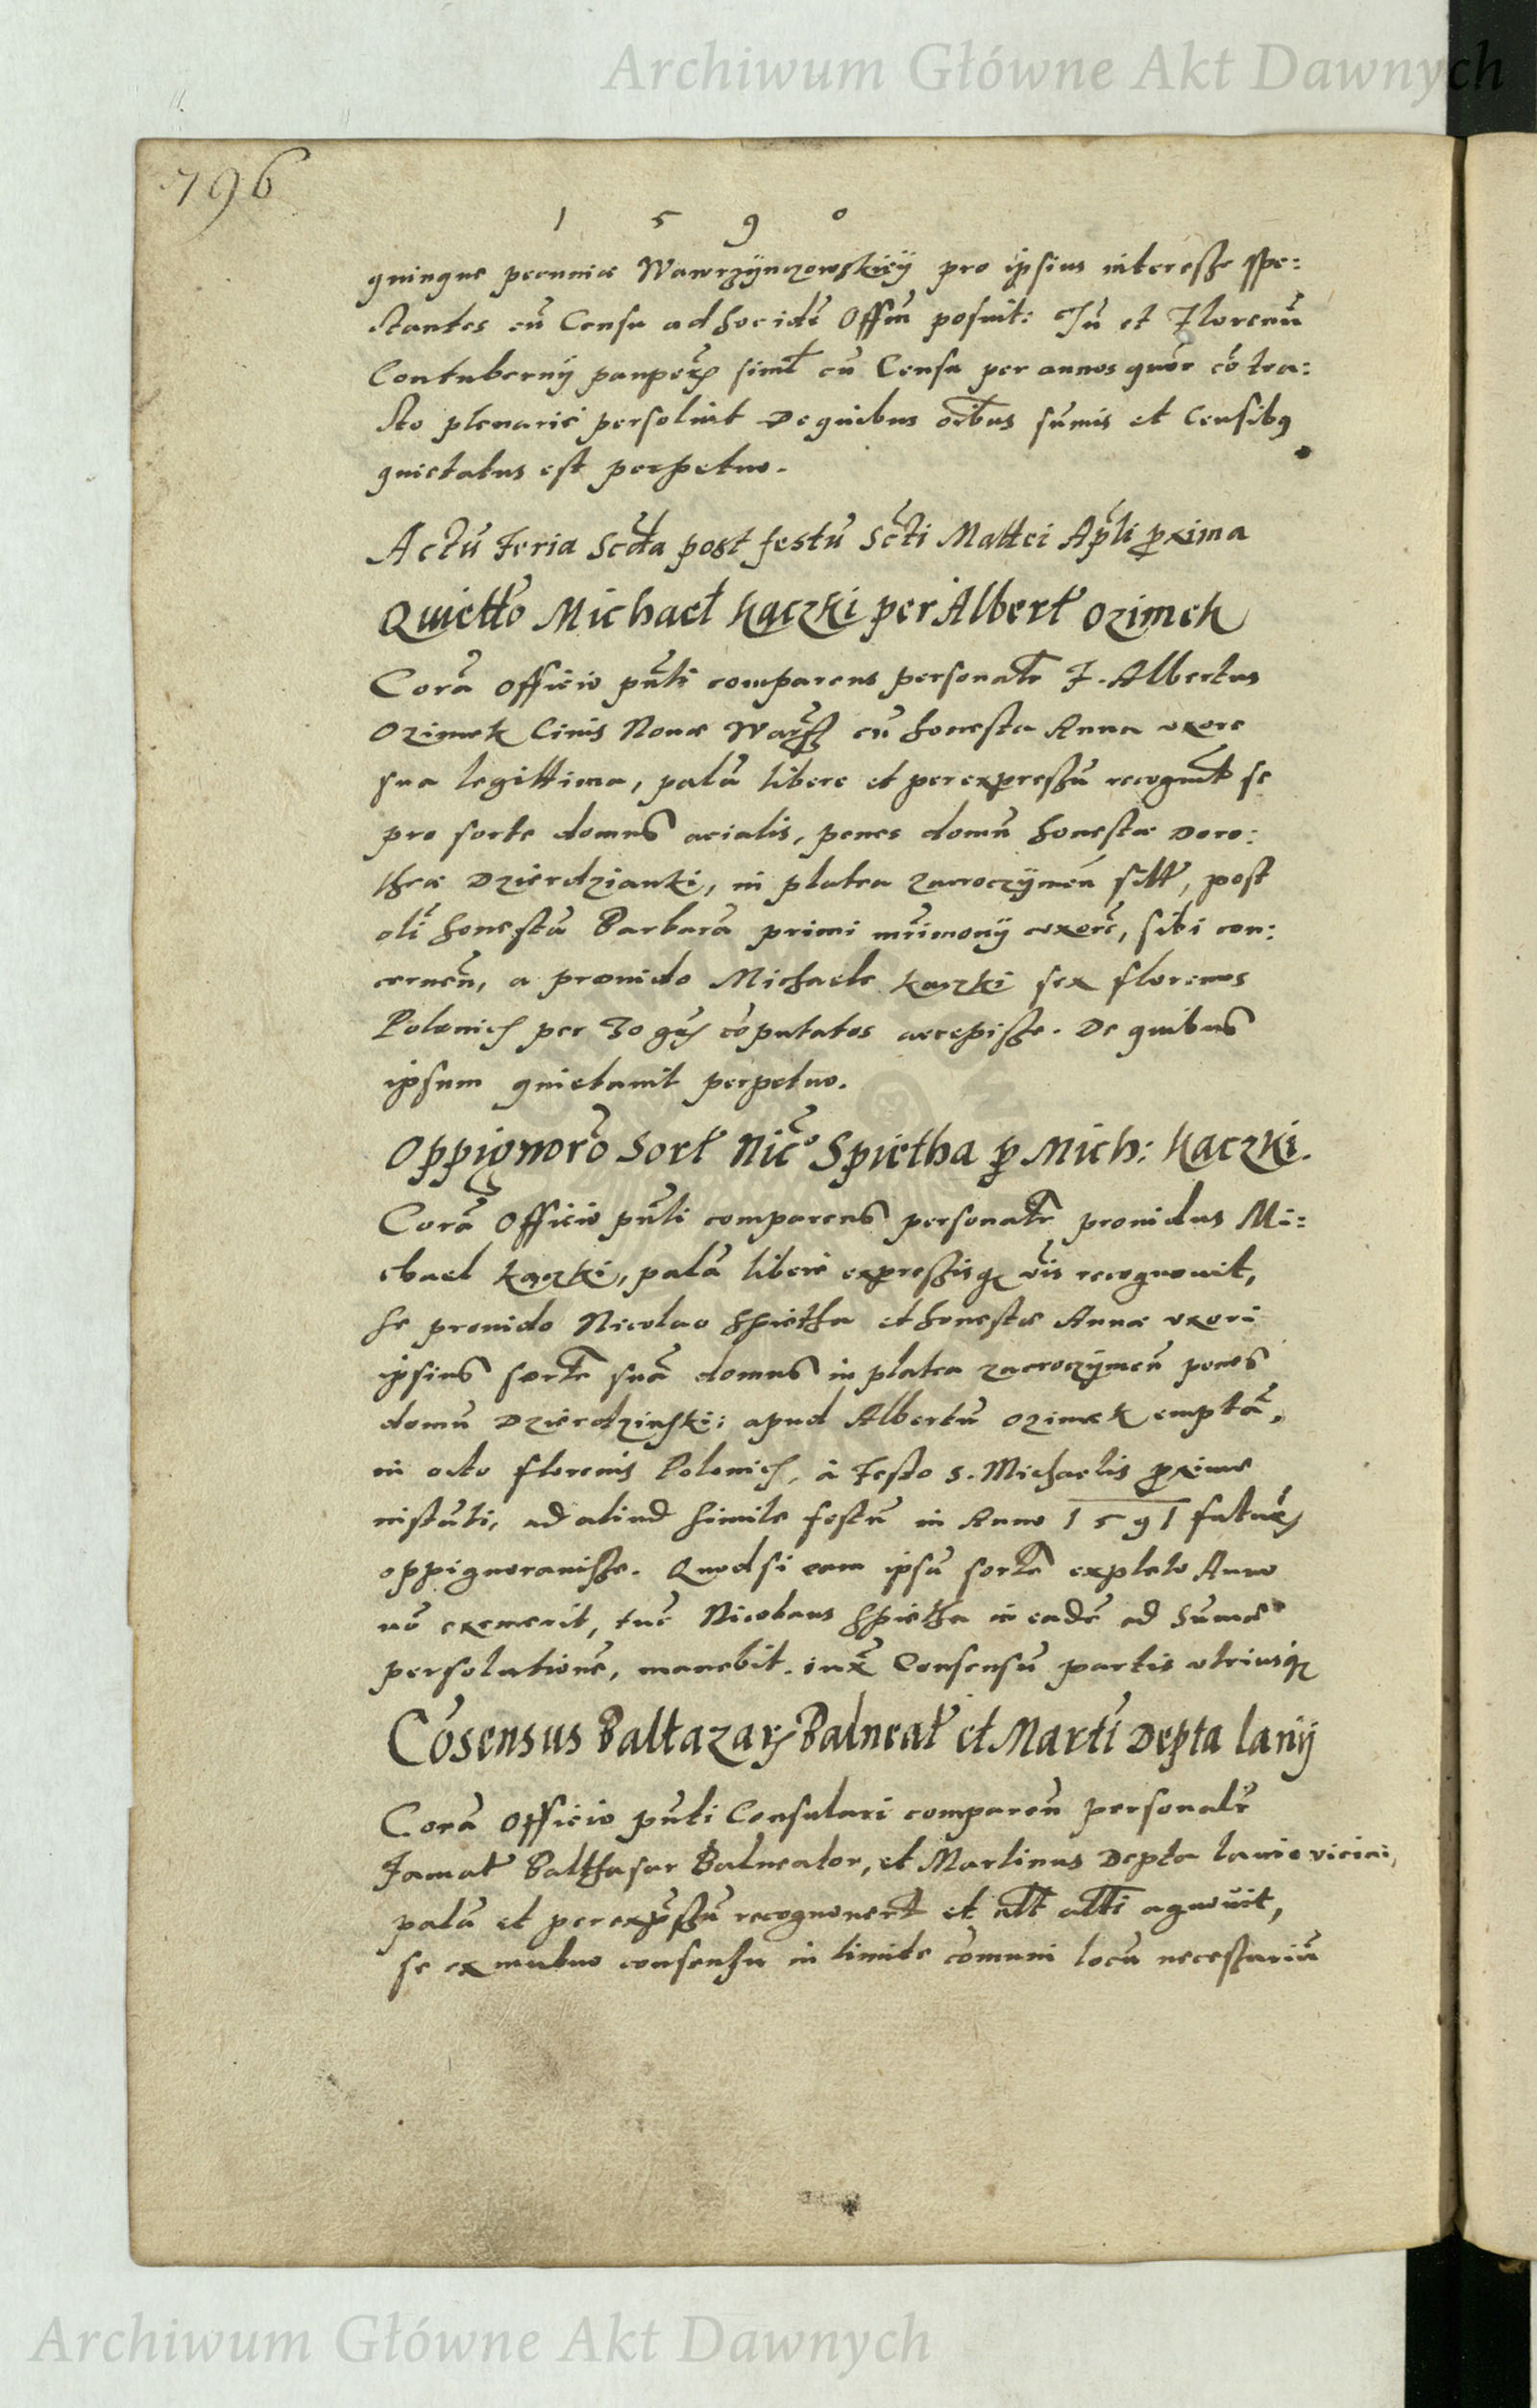 Archiwum Główne Akt Dawnych
796
1 5 9 0
quinque pecuniæ Wawrzÿnczowskieÿ pro ipsius interesse spe:
ctantes cũ Censu ad hoc idẽ Offm̃ posuit: Tũ et Florenũ
Contubernÿ pauperꝝ siml̃ cũ Censu per annos quor̃ cõtra:
cto plenarie persoluit De quibus oĩbus sum̃is et Censibꝰ
quietatus est perpetuo.
Actũ Feria Scd̃a post festũ Scti Mattei Apli ꝓxima
Quiettõ Michael̃ Kaczki per Albert̃ Ozimek
Corã Officio pñti comparens personalr̃ F. Albertus
Ozimek Ciuis Nouæ Warss cũ honesta Anna uxore
sua legittima, palã libere et per expressũ recognuit se
pro sorte domus acialis, penes domũ honestæ Doro:
theæ Dzierdzianki, in platea zacroczÿmeñ sitt, post
olĩ honestã Barbarã primi mr̃imonÿ uxorẽ, sibi con:
cerneñ, a prouido Michaele Kaczki sex florenos
Polonich per 30 gṝ cõputatos accepisse. De quibus
ipsum quietauit perpetuo.
Oppignorõ Sort̃ Nicõ Spietha ꝑ Mich: Kaczki.
Corã Officio pñti comparens personalr̃ prouidus Mi:
chael Kaczki, palã libere expressisqꝫ ũis recognouit,
se prouido Nicolao Spietha et honestæ Annæ uxori
ipsius sortẽ suã domus in platea zacroczÿmeñ penes
domũ Dzierdzinski: apud Albertũ Ozimek emptã,
in octo florenis Polonich, à Festo S. Michaelis ꝓxime
instãti, ad aliud simile festũ in Anno 1591 futurꝝ
oppignorauisse. Quod si eam ipsã sortẽ expleto Anno
nõ exemerit, tũc Nicolaus Spietha in eadẽ ad Sum̃æ
persolutionẽ, manebit. iuxã Consensũ partis utriusqꝫ
Cõsensus Baltazarꝭ Balneat̃ et Martĩ Depta lanÿ
Corã Officio pñti Consulari compareñ personalr̃
Famat̃ Balthasar Balneator, et Martinus Depta lanio vicini,
palã et per exp̃ssũ recognouer̃t et alt̃ alt̃i agnouit,
se ex mutuo consensu in limite cõmuni locũ necessariũ
Archiwum Główne Akt Dawnych